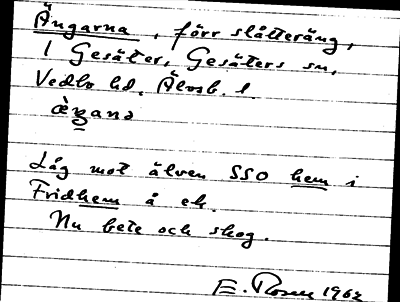 Ängarna, förr slåtteräng,
1 Gesäter, Gesäters sn,
Vedbo hd. Älvsb. l.
Låg mot älven SSO hem i
Fridhem å ek.
Nu bete och skog.
E. Rosen 1962